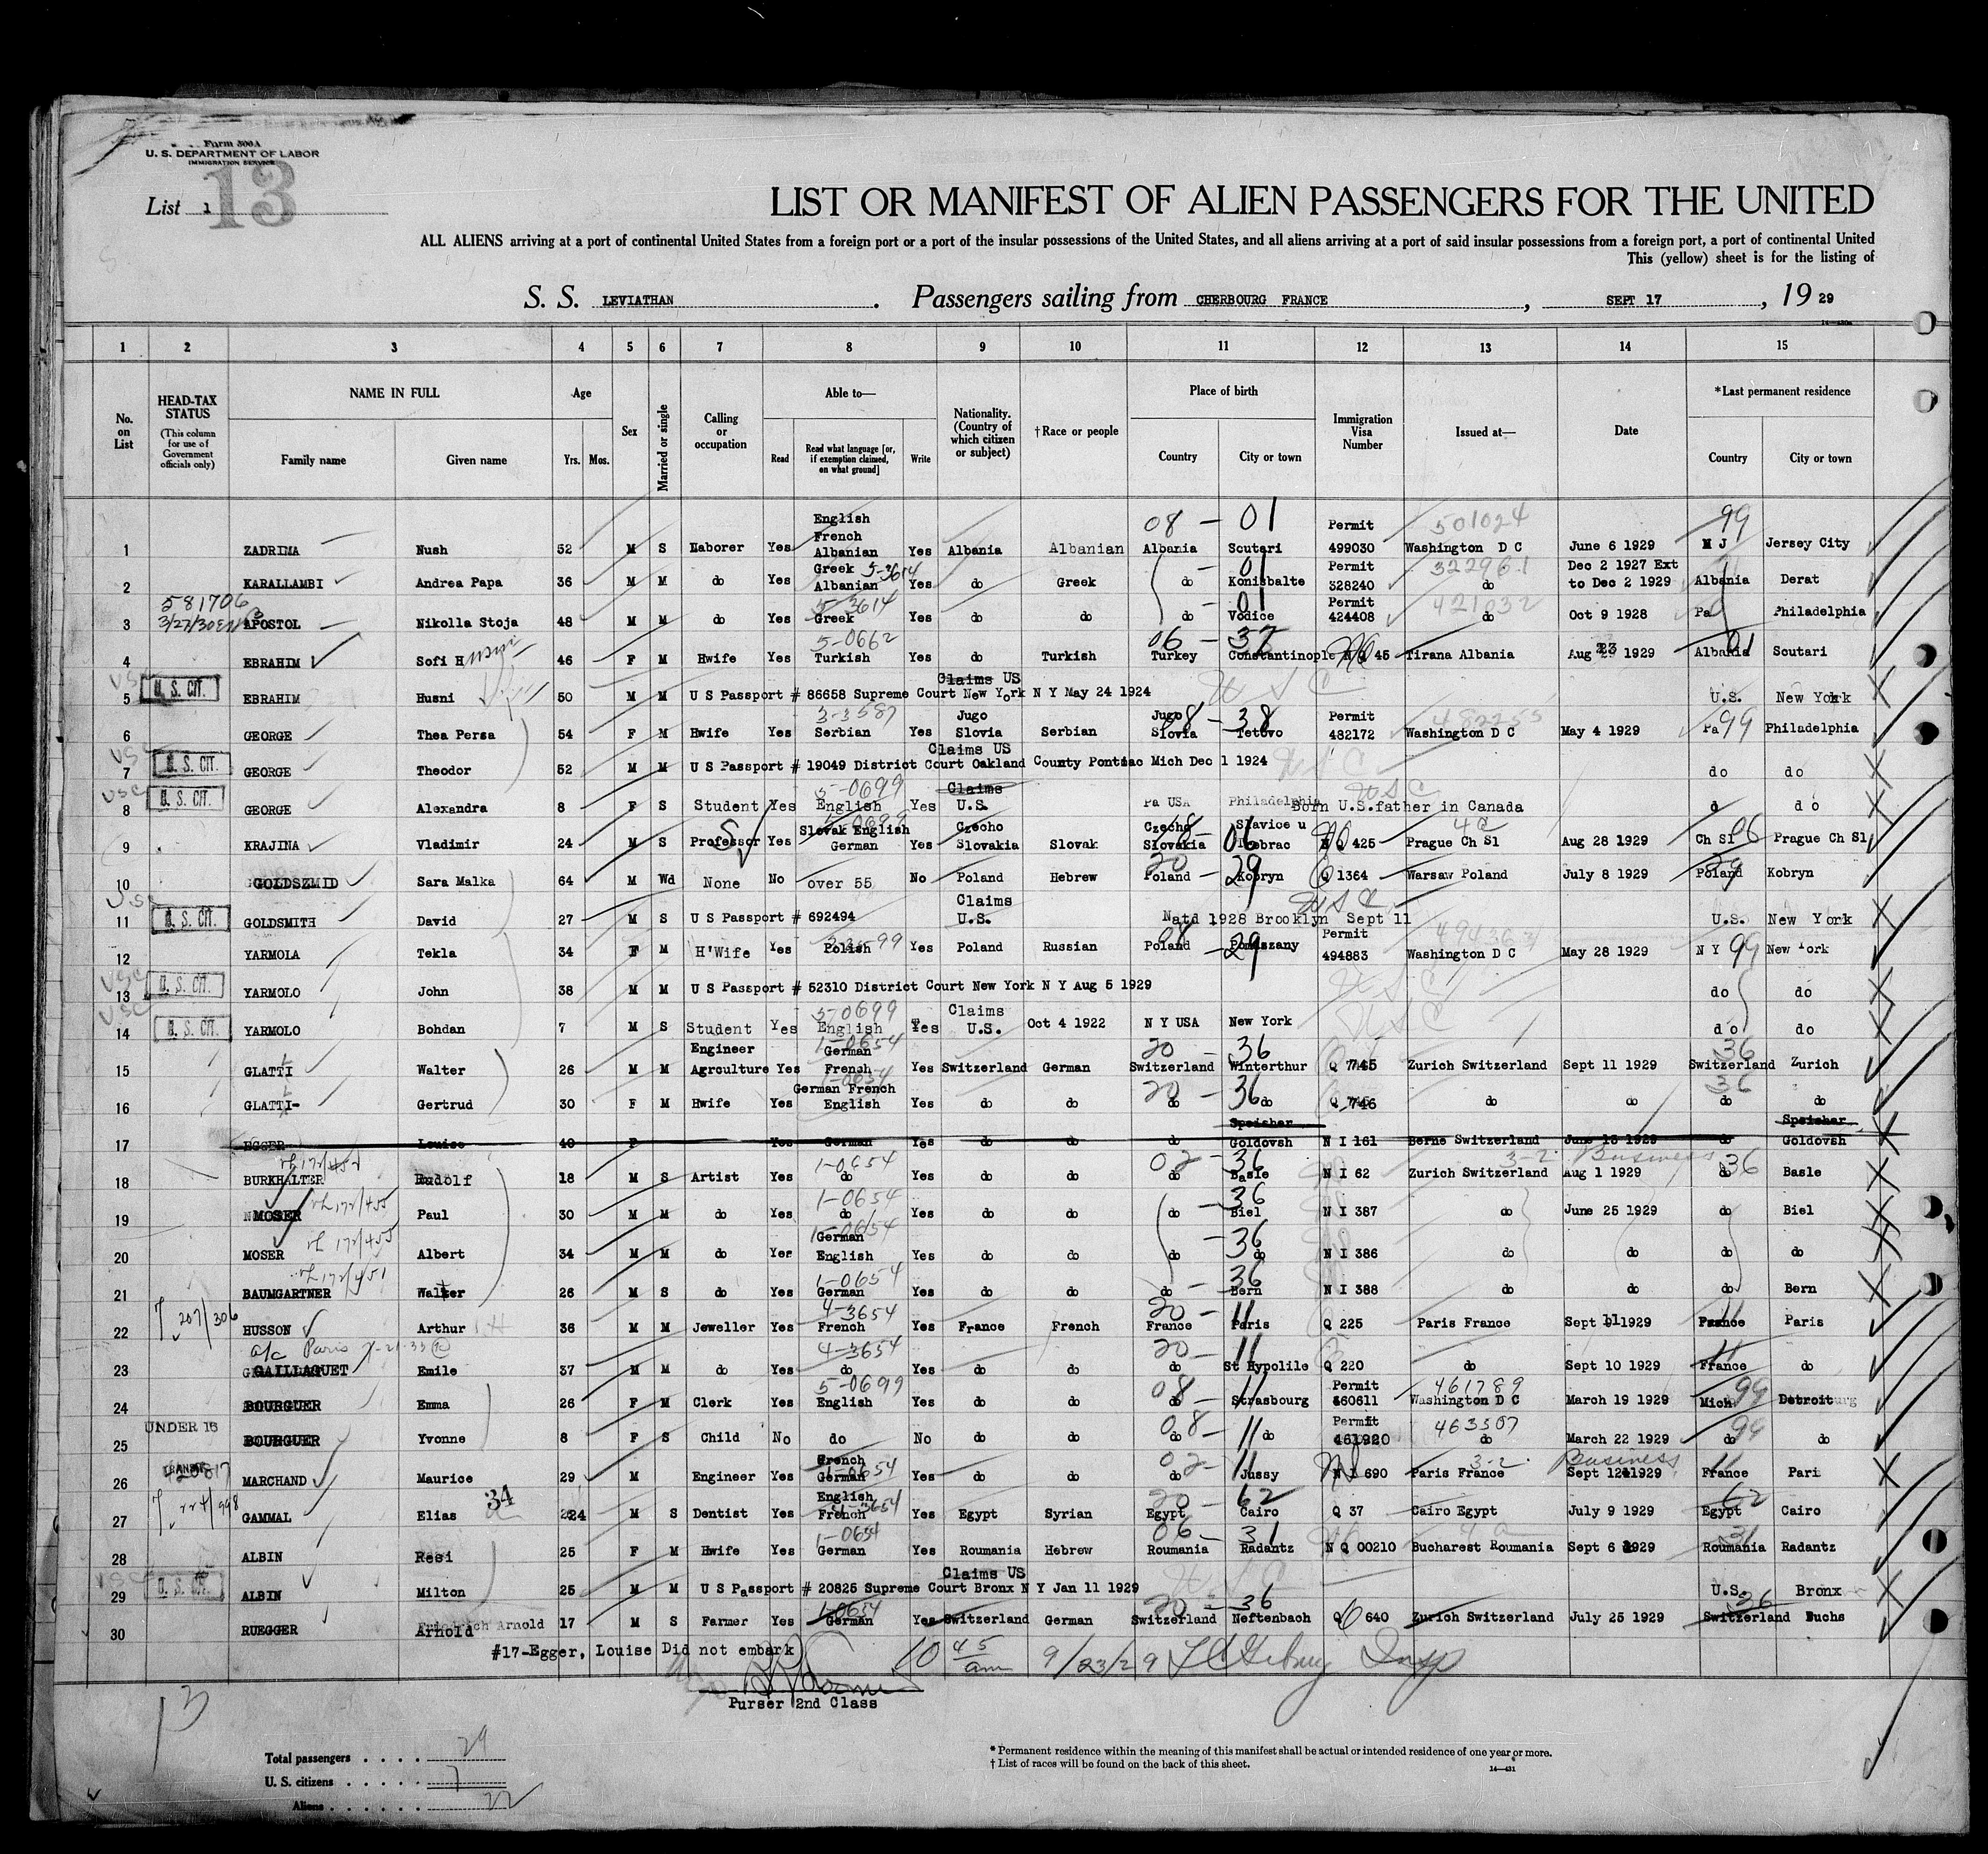 Form 500A
U. S. DEPARTMENT OF LABOR
IMMIGRATION SERVICE
List 1
13
LIST OR MANIFEST OF ALIEN PASSENGERS FOR THE UNITED
ALL ALIENS arriving at a port of continental United States from a foreign port or a port of the insular possessions of the United States, and all aliens arriving at a port of said insular possessions from a foreign port, a port of continental United
This (yellow) sheet is for the listing of
S. S. LEVIATHAN. Passengers sailing from CHERBOURG FRANCE, SEPT 17, 19 29
1 2 3 4 5 6 7 8 9 10 11 12 13 14 15
No. on List HEAD-TAX STATUS (This column for use of Government officials only) NAME IN FULL Family name Given name Age Yrs. Mos. Sex Married or single Calling or occupation Able to— Read Read what language [or, if exemption claimed, on what ground] Write Nationality. (Country of which citizen or subject) † Race or people Place of birth Country City or town Immigration Visa Number Issued at— Date * Last permanent residence Country City or town
1 ZADRIMA Nush 52 M S Laborer Yes English French Albanian Yes Albania Albanian Albania Scutari 08 - 01 Permit 499030 501024 Washington D C June 6 1929 99 N J Jersey City
2 KARALLAMBI Andrea Papa 36 M M do Yes Greek Albanian 5-3614 Yes do Greek do Konisbalte 01 Permit 328240 322961 do Dec 2 1927 Ext to Dec 2 1929 Albania Derat
581706
3 3/27/30 APOSTOL Nikolla Stoja 48 M M do Yes 5-3614 Greek Yes do do do Vodice 01 Permit 424408 421032 do Oct 9 1928 Pa Philadelphia
4 EBRAHIM Sofi H 46 F M Hwife Yes 5-0662 Turkish Yes do Turkish 06 - 37 Turkey Constantinople N Q 45 Tirana Albania Aug 23 1929 Albania 01 Scutari
5 U. S. CIT. EBRAHIM Husni 50 M M Claims US U S Passport # 86658 Supreme Court New York N Y May 24 1924 USC U.S. New York
6 GEORGE Thea Persa 54 F M Hwife Yes 3-3587 Serbian Yes Jugo Slovia Serbian Jugo Slovia 08 - 38 Tetovo Permit 482172 482255 Washington D C May 4 1929 Pa 99 Philadelphia
7 USC U. S. CIT. GEORGE Theodor 52 M M Claims US U S Passport # 19049 District Court Oakland County Pontiac Mich Dec 1 1924 USC do do
8 USC U. S. CIT. GEORGE Alexandra 8 F S Student Yes 5-0699 English Yes Claims U.S. Pa USA Philadelphia Born U.S. father in Canada USC d do
9 KRAJINA Vladimir 24 M S Professor Yes 5-0699 Slovak English German Yes Czecho Slovakia Slovak Czecho Slovakia 06 Slavice u Trebrac N Q 425 Prague Ch Sl Aug 28 1929 Ch Sl 06 Prague Ch Sl
10 GOLDSZMID Sara Malka 64 M Wd None No over 55 No Poland Hebrew 20 Poland 29 Kobryn Q 1364 Warsaw Poland July 8 1929 29 Poland Kobryn
11 U. S. CIT. GOLDSMITH David 27 M S U S Passport # 692494 Claims U.S. Natd 1928 Brooklyn Sept 11 USC U.S. New York
12 YARMOLA Tekla 34 F M H'Wife Yes Polish Yes Poland Russian 08 Poland - 29 Pomaszany Permit 494883 Washington D C May 28 1929 N Y 99 New York
13 USC U. S. CIT. YARMOLO John 38 M M U S Passport # 52310 District Court New York N Y Aug 5 1929 USC do do
14 USC U. S. CIT. YARMOLO Bohdan 7 M S Student Yes 5-0699 English Yes Claims U.S. Oct 4 1922 N Y USA New York USC do do
15 GLATTI Walter 26 M M Engineer Agrculture Yes 1-0654 German French Yes Switzerland German 20 - 36 Switzerland Winterthur Q 745 Zurich Switzerland Sept 11 1929 36 Switzerland Zurich
16 GLATTI Gertrud 30 F M Hwife Yes 1-0654 German French English Yes do do 20 - 36 do do Q 746 do do 36 do do
17 EGGER Louise 40 F Yes German Yes do do do Speicher Goldovsh N I 161 Berne Switzerland June 15 1929 do Speicher Goldovsh
18 BURKHALTER Rudolf 18 M S Artist Yes 1-0654 do Yes do do 02 - 36 do Basle N I 62 Zurich Switzerland 3-2 Business Aug 1 1929 36 do Basle
19 MOSER Paul 30 M M do Yes 1-0654 do Yes do do do - 36 Biel N I 387 do June 25 1929 do Biel
20 MOSER Albert 34 M M do Yes 1-0654 German English Yes do do do - 36 do N I 386 do do do do
21 BAUMGARTNER Walter 26 M S do Yes 1-0654 German Yes do do do - 36 Bern N I 388 do do do Bern
22 207/306 HUSSON Arthur 36 M M Jeweller Yes 4-3654 French Yes France French 20 - 11 France Paris Q 225 Paris France Sept 11 1929 11 France Paris
a/c Paris
23 GAILLAQUET Emile 37 M M do Yes 4-3654 do Yes do do 20 - 11 do St Hypolile Q 220 do Sept 10 1929 11 France do
24 BOURGUER Emma 26 F M Clerk Yes 5-0699 English Yes do do 08 - 11 do Strasbourg Permit 460611 461789 Washington D C March 19 1929 Mich 99 Detroit
25 UNDER 16 BOURGUER Yvonne 8 F S Child No do No do do 08 - 11 do do Permit 461920 463307 do March 22 1929 99 do do
26 MARCHAND Maurice 29 M Engineer Yes French German 1-0654 Yes do do 02 - 11 do Jussy N I 690 Paris France 3-2 Business Sept 12 1929 11 France Pari
27 224/998 GAMMAL Elias 34 24 M S Dentist Yes English French Yes Egypt Syrian 20 - 62 Egypt Cairo Q 37 Cairo Egypt July 9 1929 62 Egypt Cairo
28 ALBIN Resi 25 F M Hwife Yes 1-0654 German Yes Roumania Hebrew 06 - 31 Roumania Radantz N Q 00210 Bucharest Roumania Sept 6 1929 31 Roumania Radantz
29 USC U. S. CIT. ALBIN Milton 25 M M Claims US U S Passport # 20825 Supreme Court Bronx N Y Jan 11 1929 USC U.S. Bronx
30 RUEGGER Friedrich Arnold Arnold 17 M S Farmer Yes 1-0654 German Yes Switzerland German 20 - 36 Switzerland Neftenbach Q 640 Zurich Switzerland July 25 1929 36 Switzerland Buchs
#17-Egger, Louise Did not embark
10 45 am 9/23/29
Purser 2nd Class
13
Total passengers . . . . 29
U. S. citizens . . . . . 7
Aliens . . . . . . 22
* Permanent residence within the meaning of this manifest shall be actual or intended residence of one year or more.
† List of races will be found on the back of this sheet.
14—431